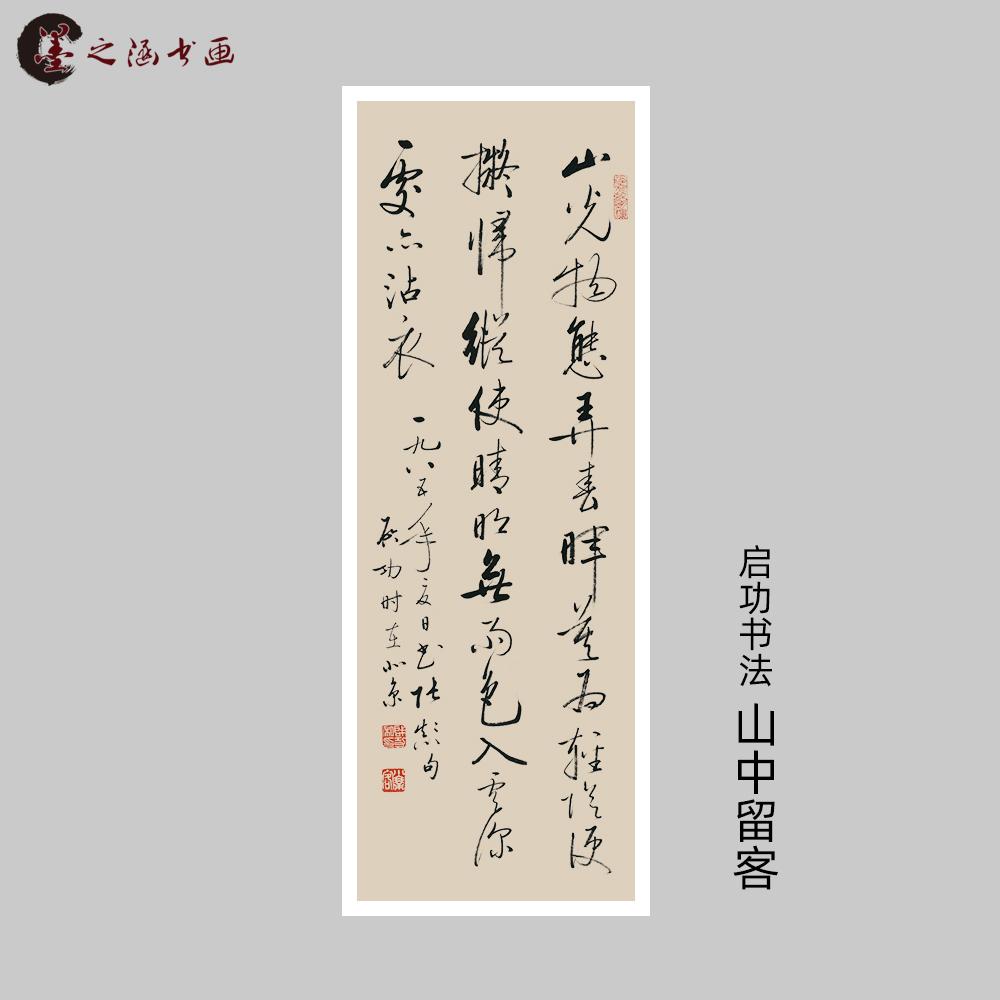 墨之涵书画
山光物態弄春暉莫為輕陰便
擬歸縱使晴明無雨色入雲深
處亦沾衣
一九八五年夏日书张颠句
启功时在北京
启功书法 山中留客